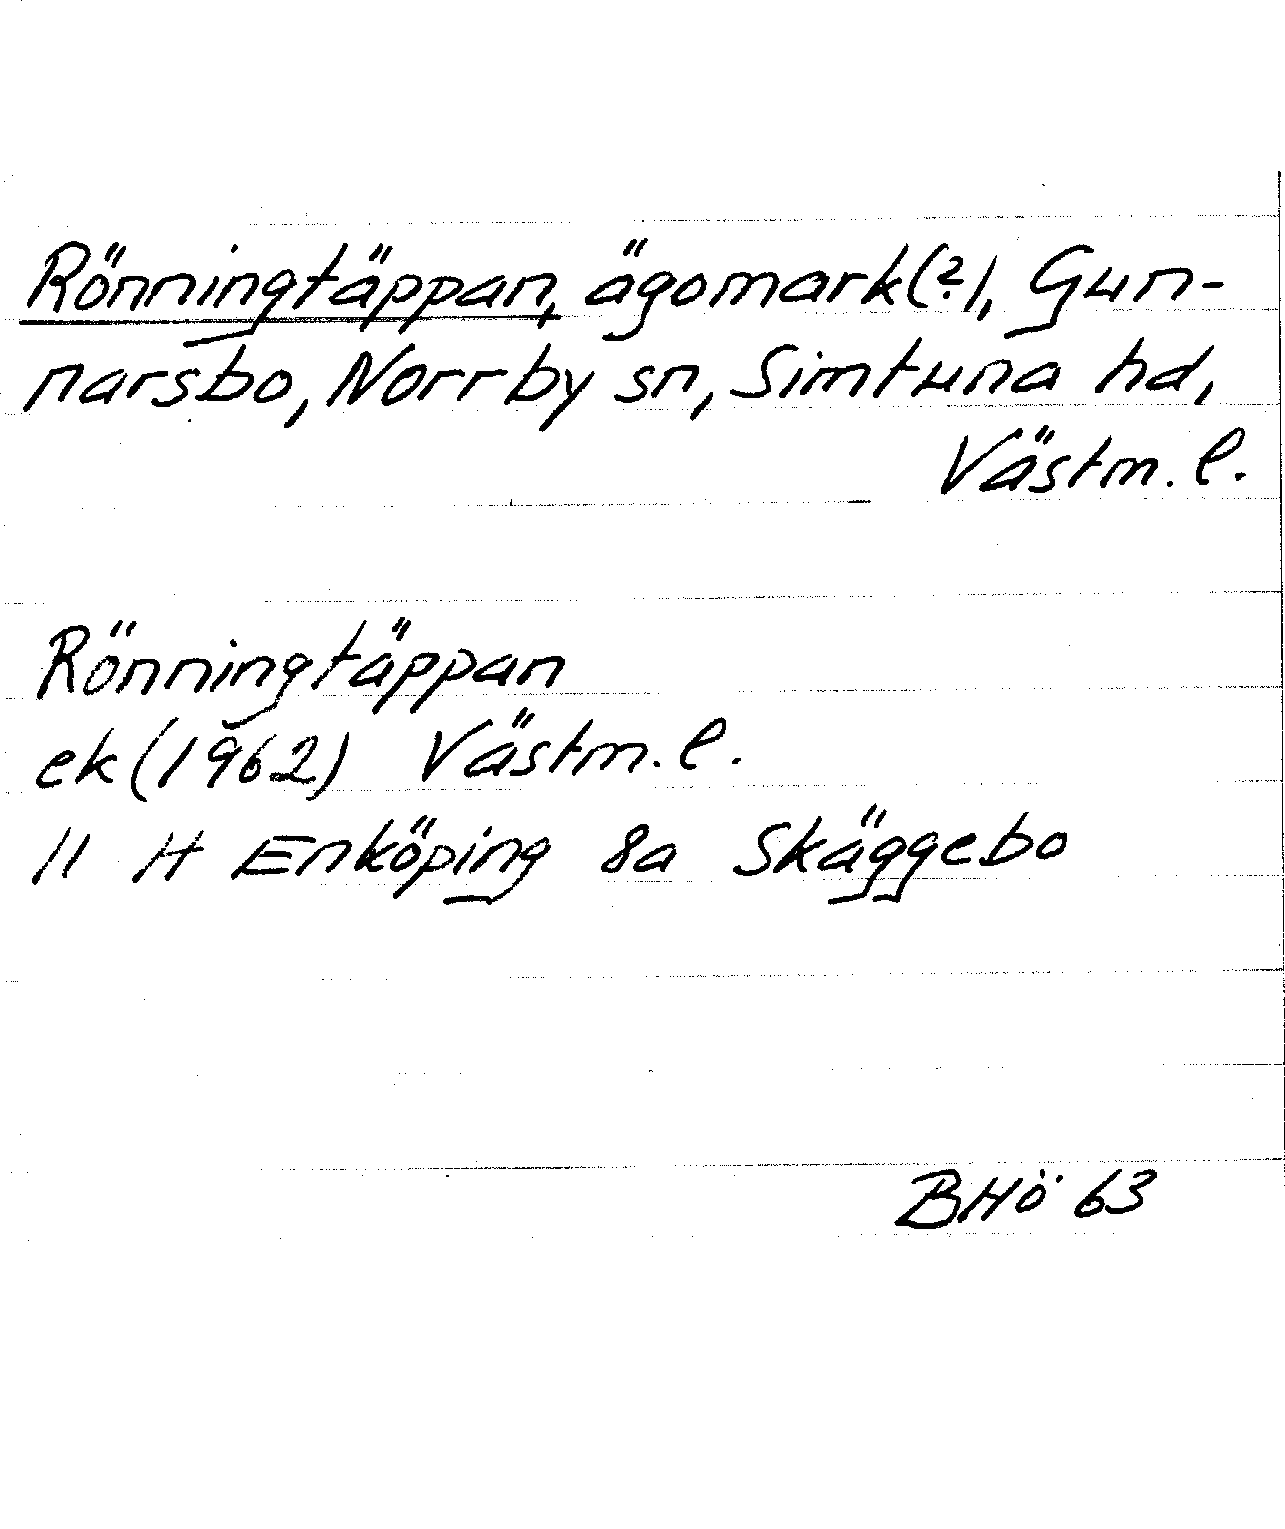 Rönningtäppan, ägomark(?), Gun-
narsbo, Norrby sn, Simtuna hd,
Västm. l.
Rönningtäppan
ek (1962) Västm. l.
11 H Enköping 8a Skäggebo
BHö 63